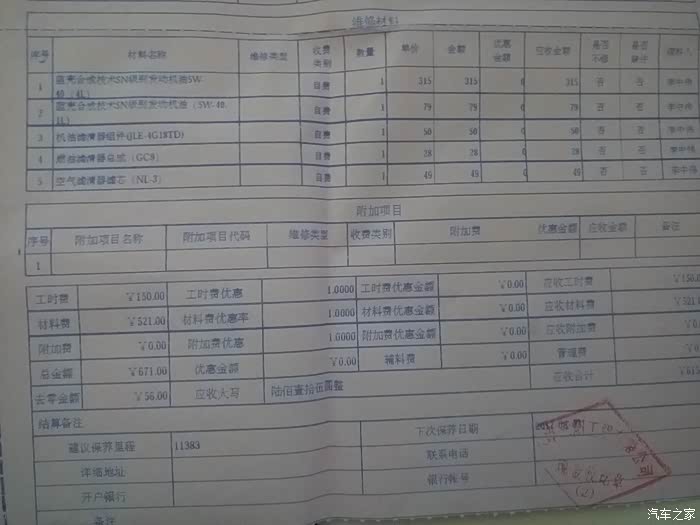 维修材料
序号 材料名称 维修类型 收费类别 数量 单价 金额 优惠金额 应收金额 是否 是否
1 蓝壳合成技术SN级别发动机油5W-40（4L） 自费 1 315 315 0 315 否 否 李中伟
2 蓝壳合成技术SN级别发动机油（5W-40,1L） 自费 1 79 79 0 79 否 否 李中伟
3 机油滤清器组件(JLE-4G18TD) 自费 1 50 50 0 50 否 否 李中伟
4 燃油滤清器总成（GC9） 自费 1 28 28 0 28 否 否 李中伟
5 空气滤清器滤芯（NL-3） 自费 1 49 49 0 49 否 否 李中伟
附加项目
序号 附加项目名称 附加项目代码 维修类型 收费类别 附加费 优惠金额 应收金额 备注
1
工时费 ￥150.00 工时费优惠 1.0000 工时费优惠金额 ￥0.00 应收工时费 ￥150
材料费 ￥521.00 材料费优惠率 1.0000 材料费优惠金额 ￥0.00 应收材料费 ￥521
附加费 ￥0.00 附加费优惠 1.0000 附加费优惠金额 ￥0.00 应收附加费 ￥0
总金额 ￥671.00 优惠金额 ￥0.00 辅料费 ￥0.00 管理费 ￥0
去零金额 ￥56.00 应收大写 陆佰壹拾伍圆整 应收合计 ￥615
结算备注
建议保养里程 11383 下次保养日期
详细地址 联系电话
开户银行 银行帐号
备注
汽车之家